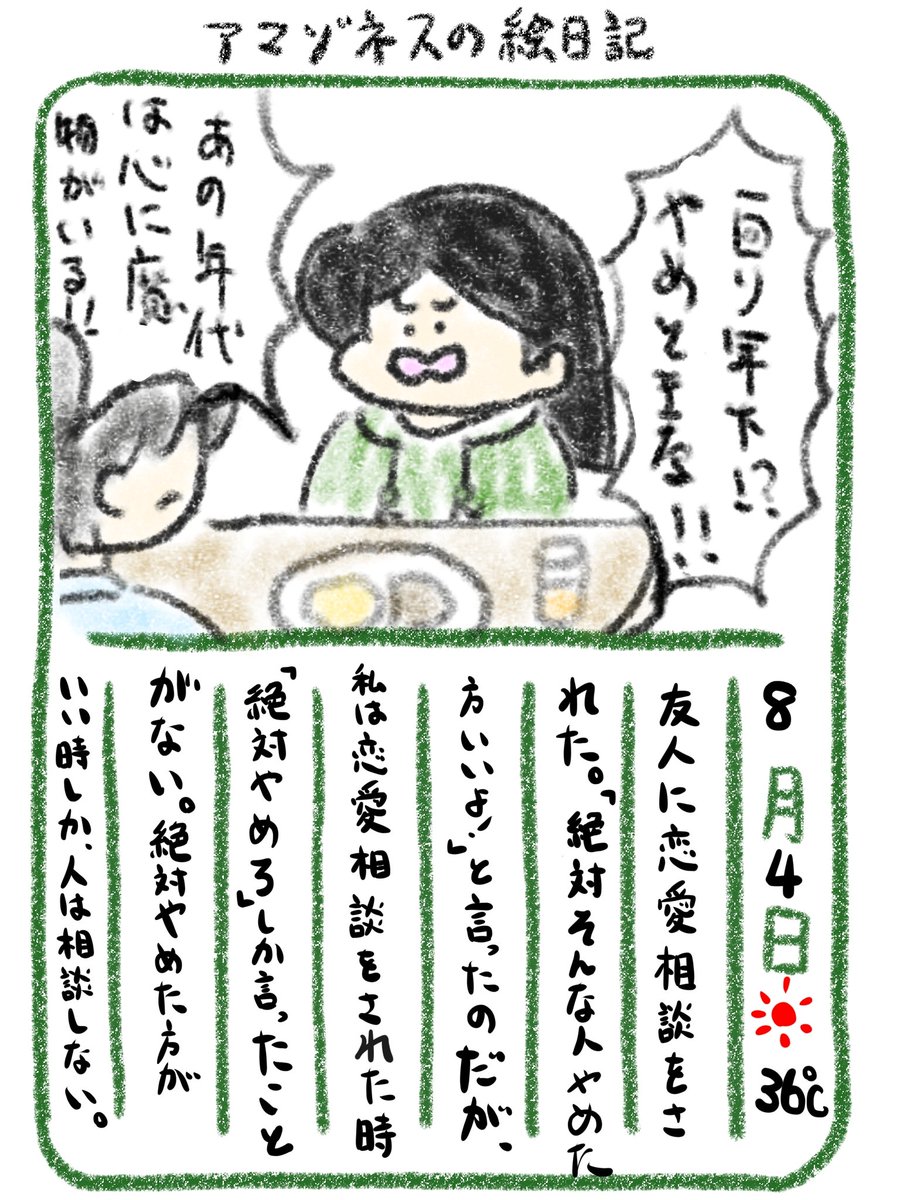 アマゾネスの絵日記
一回り年下!?
やめときな!!
あの年代
は心に魔
物がいる!!
8月4日 36℃
友人に恋愛相談をさ
れた。「絶対そんな人やめた
方いいよ!」と言ったのだが、
私は恋愛相談をされた時
「絶対やめろ」しか言ったこと
がない。絶対やめた方が
いい時しか、人は相談しない。